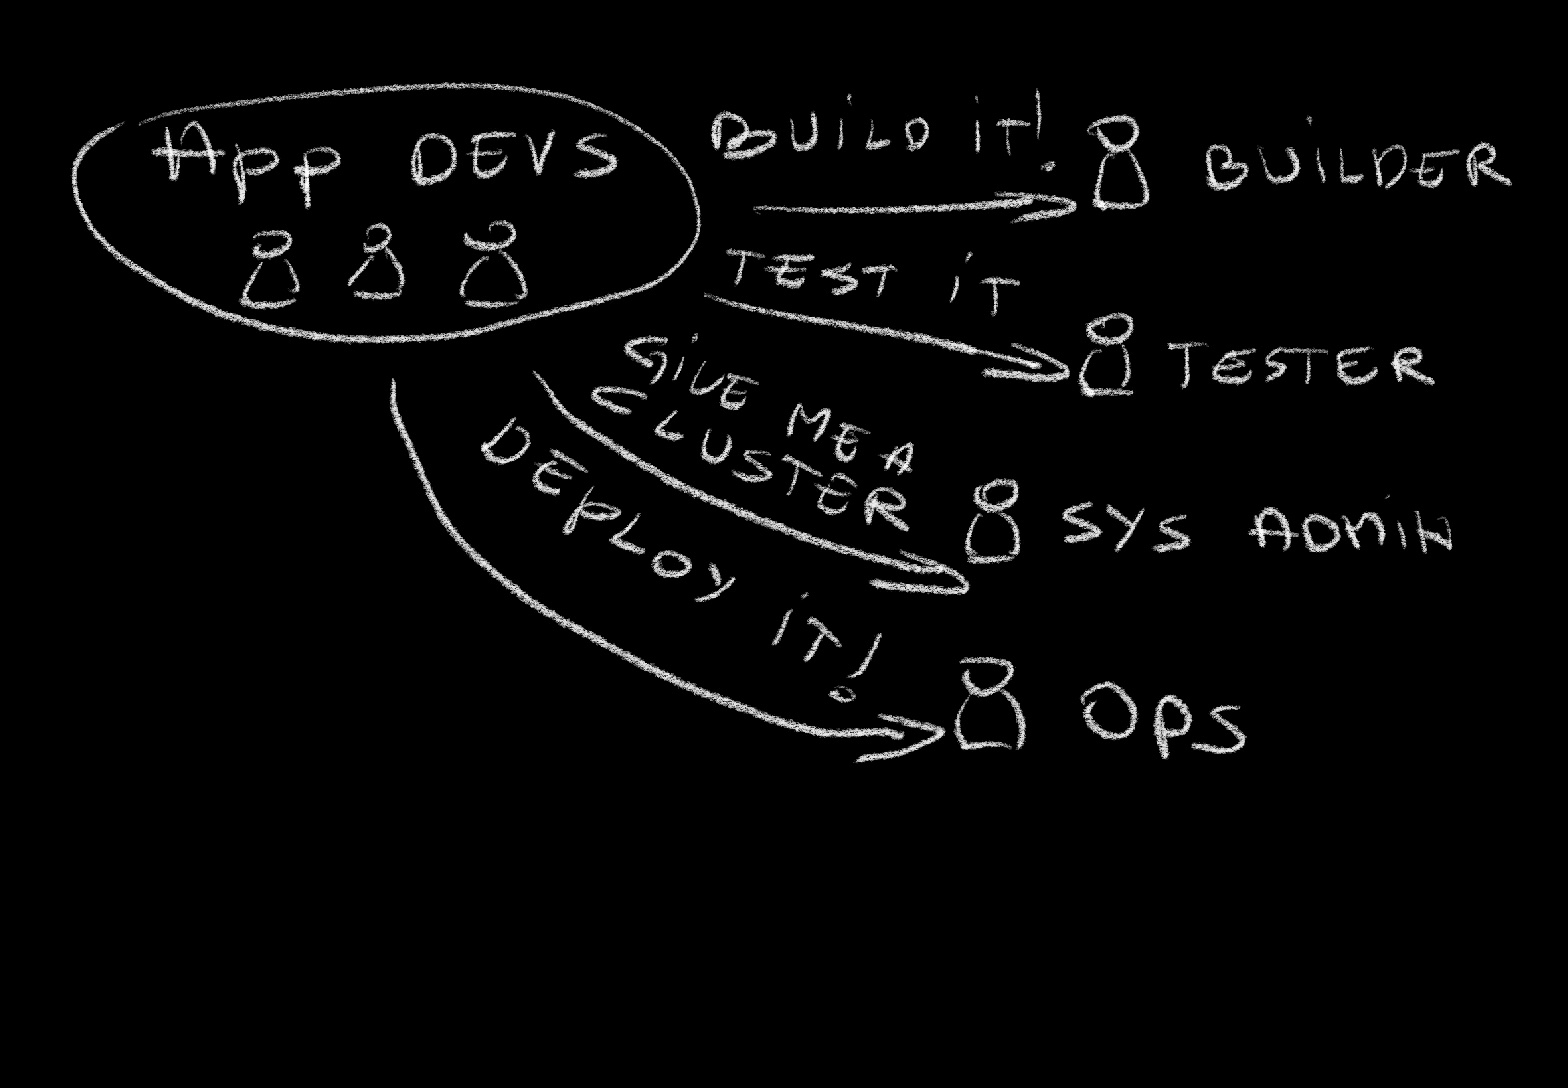 App DEVS
BUiLD iT!
BUiLDER
TEST iT
TESTER
GiVE ME A
CLUSTER
SYS ADMiN
DEPLOY iT!
OPS